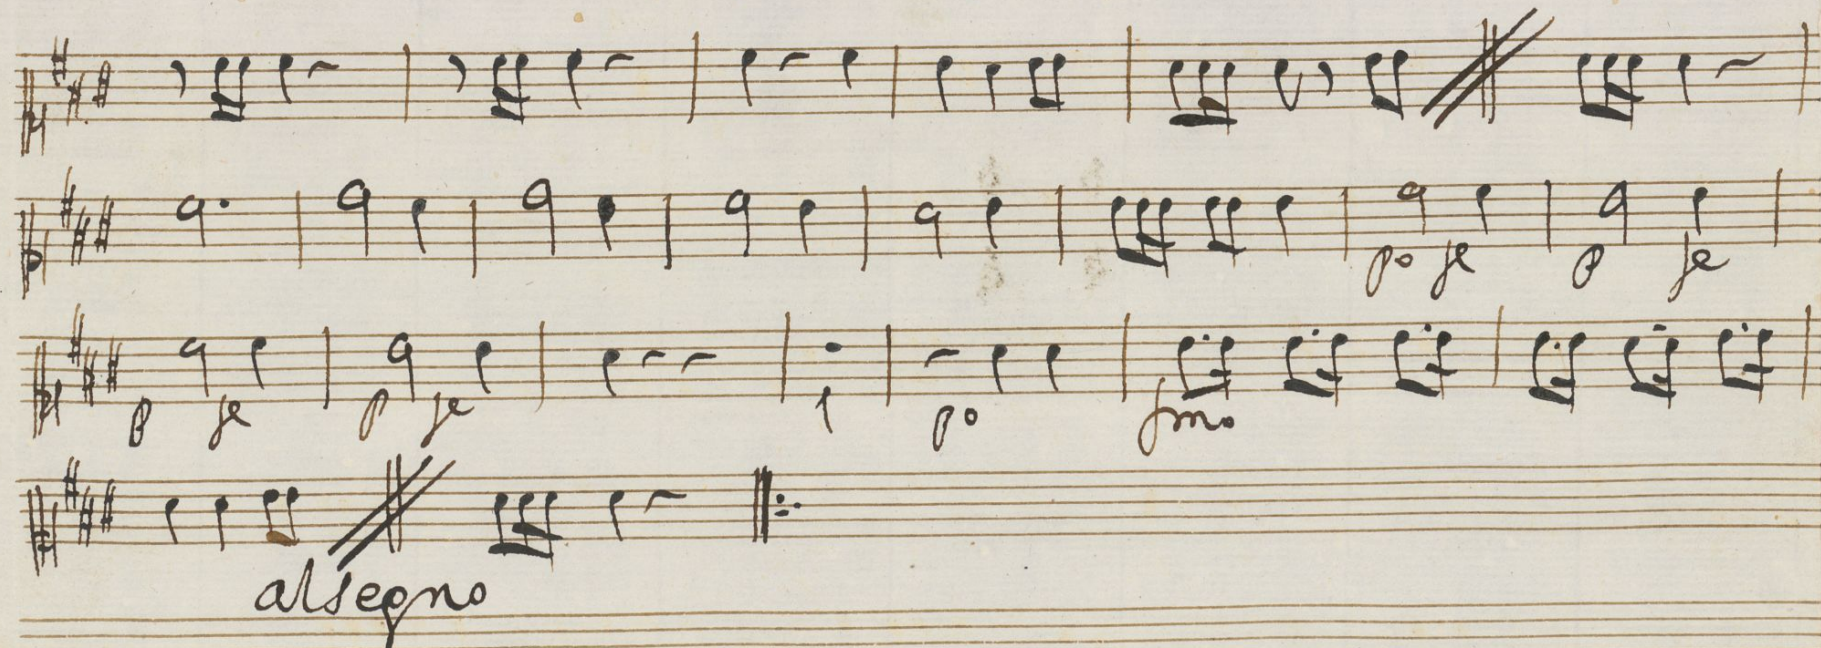 po fe p fe
p fe p fe 1 po fmo
al segno